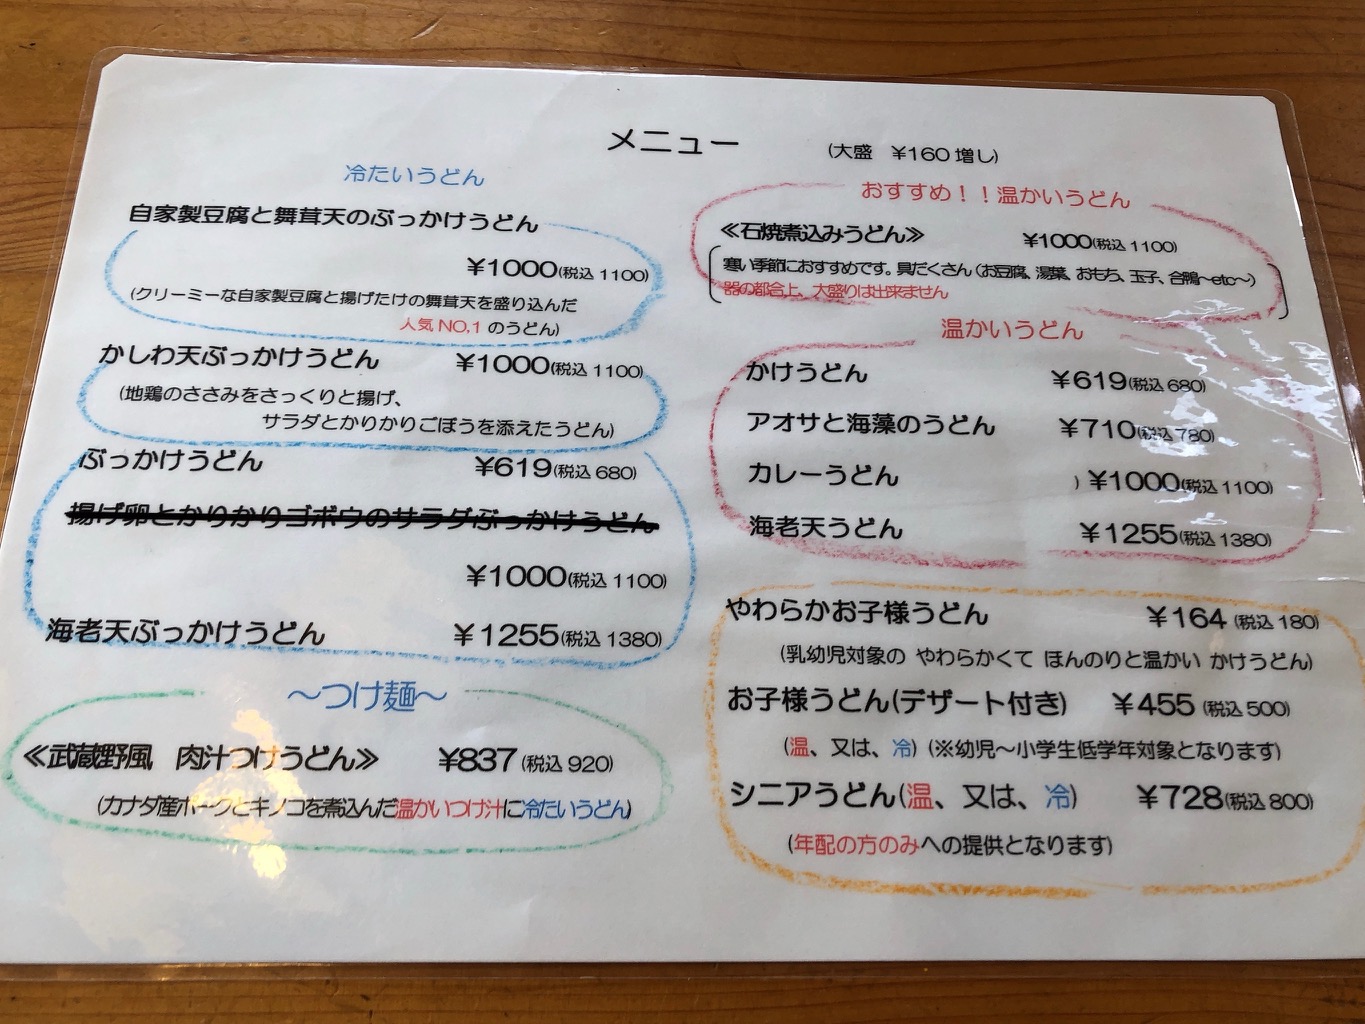 メニュー
(大盛 ¥160増し)
冷たいうどん
自家製豆腐と舞茸天のぶっかけうどん
¥1000(税込1100)
(クリーミーな自家製豆腐と揚げたけの舞茸天を盛り込んだ
人気NO,1 のうどん)
かしわ天ぶっかけうどん ¥1000(税込1100)
(地鶏のささみをさっくりと揚げ、
サラダとかりかりごぼうを添えたうどん)
ぶっかけうどん ¥619(税込680)
揚げ卵とかりかりゴボウのサラダぶっかけうどん
¥1000(税込1100)
海老天ぶっかけうどん ¥1255(税込1380)
～つけ麺～
≪武蔵野風 肉汁つけうどん≫ ¥837(税込920)
(カナダ産ポークとキノコを煮込んだ温かいつけ汁に冷たいうどん)
おすすめ！！温かいうどん
≪石焼煮込みうどん≫ ¥1000(税込1100)
寒い季節におすすめです。具だくさん（お豆腐、湯葉、おもち、玉子、合鴨～etc～)
器の都合上、大盛りは出来ません
温かいうどん
かけうどん ¥619(税込680)
アオサと海藻のうどん ¥710(税込780)
カレーうどん ) ¥1000(税込1100)
海老天うどん ¥1255(税込1380)
やわらかお子様うどん ¥164(税込180)
(乳幼児対象の やわらかくて ほんのりと温かい かけうどん)
お子様うどん(デザート付き) ¥455(税込500)
(温、又は、冷)(※幼児～小学生低学年対象となります)
シニアうどん(温、又は、冷) ¥728(税込800)
(年配の方のみへの提供となります)